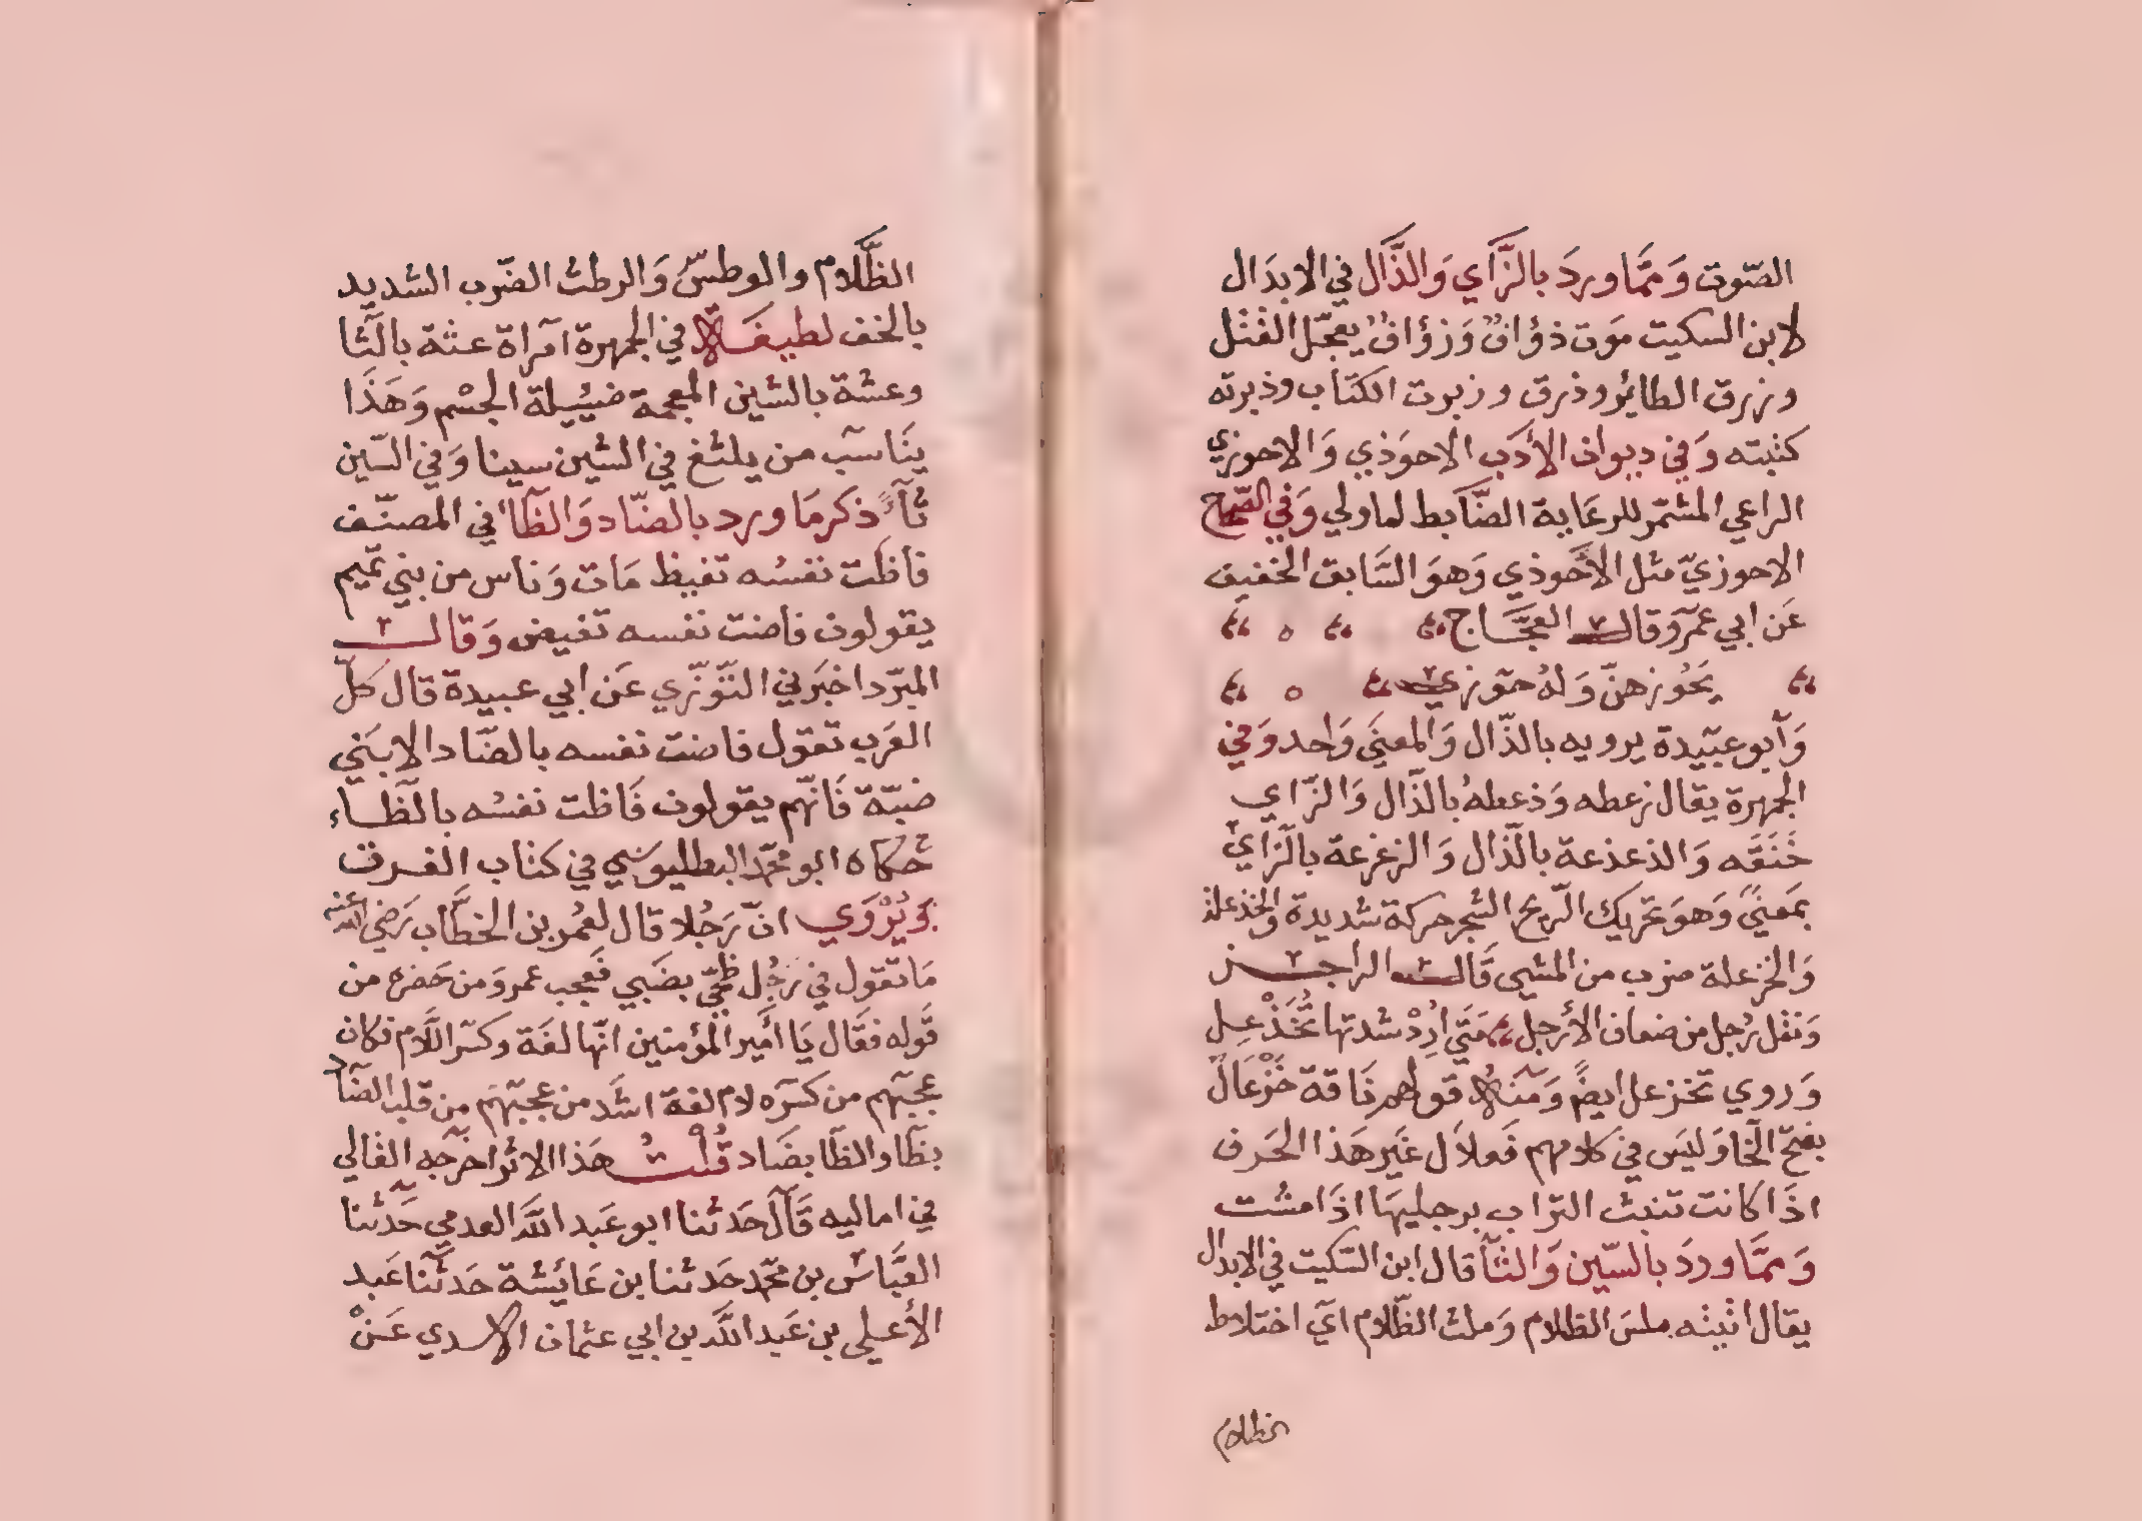 الصّوت وَممَّا وردَ بالزَّاي وَالذَّال في الابدَال
لابن السكيت مَوت ذؤافٌ وَزؤافٌ يعجّل القتْل
وزرق الطائر وذرق وزبرت الكتاب وذبرته
كتبته وَفي ديوان الأدَب الاحوَذي وَالاحوزي
الراعي المشمّر للرعَاية الضَّابط لما ولي وَفي الصّحاح
الاحوزيّ مثل الأحَوذي وَهوَ السَّابق الخفيف
عَن ابي عمرَو قالَ العجَّاج
يَحُوزهنّ وَلهُ حَوزي
وَأبو عبَيدة يرويه بالذّال وَالمعنَي وَاحد وَفي
الجمهرة يقال زعطه وَذعطهُ بالذّال وَالزّاي
خَنَقَه وَالذعذعة بالذّال وَالزعزعة بالزّاي
بمَعنيً وَهوَ تحَريك الرّيح الشجر حركة شديدة وَالخذعلة
وَالخزعلة ضرب من المشي قَالـ الراجـز
وَنقل رُجل من ضعاف الأرجل مَتَي ارُدْ شدتها تُخَذْعِل
وَروي تخزعل ايضًا وَمنَهُ قولهم نَاقة خَزْعَالٌ
بفتح الخَا وَليَس في كلامهم فَعلاَل غيَر هَذا الحَرف
اذَا كانت تنبث التراب برجليهَا اذَا مشت
وَممَّا وردَ بالسّين وَالثَآ قال ابن السّكيت في الابدال
يقال اتيته ملسَ الظلام وَملث الظّلام اَي اختلاط
الظلام
الظَّلام والوطسُ وَالوطث الضّرب الشديد
بالخف لطيفَة في الجمهرة امَرأة عثة بالثَّا
وعشة بالشين المعجمة ضئيلة الجسْم وَهَذَا
ينَاسَب من يلثغ في الشين سينا وَفي السّين
ثآءً ذكر مَا ورد بالضّاد وَالظَآ في المصنّف
فاظت نفسُه تفيظ مَات وَناس من بني تمَيم
يقولون فاضت نفسه تفيض وَقالـ
المبَرّد اخبَرني التَّوَّزي عَن ابي عبيدة قال كلّ
العَرب تقول فاضت نفسه بالضّاد الا بَني
ضبّة فَانّهم يقولون فَاظت نفسُه بالظـاء
حَكاه ابو محمّد البطليوسَي في كتاب الفرق
وَيُرْوَي انّ رَجُلا قال لعُمر بن الخطَّاب رَضي الله عنه
مَا تقول في رَجُل ظحّي بضَبي فَعجب عمر وَمن حَضره من
قَوله فقَال يَا أمَير المؤمنين انّها لغَة وكسَر اللاَّم فكان
عجبَهم من كسَره لام لغة اشَد من عجبَهَم من قلب الضَاد
بظَا والظَا بضَاد قُلْتُ هَذا الاثر اخرَجَه القالي
في اماليه قَالَ حَدثنا ابو عَبد اللَّه العدمي حَدَثنا
العبَّاسَ بن محمّد حَدثنا بن عَائشة حَدثَّنا عَبد
الأعلى بن عَبد اللَّه بن ابي عثمان الاسدي عَنْ